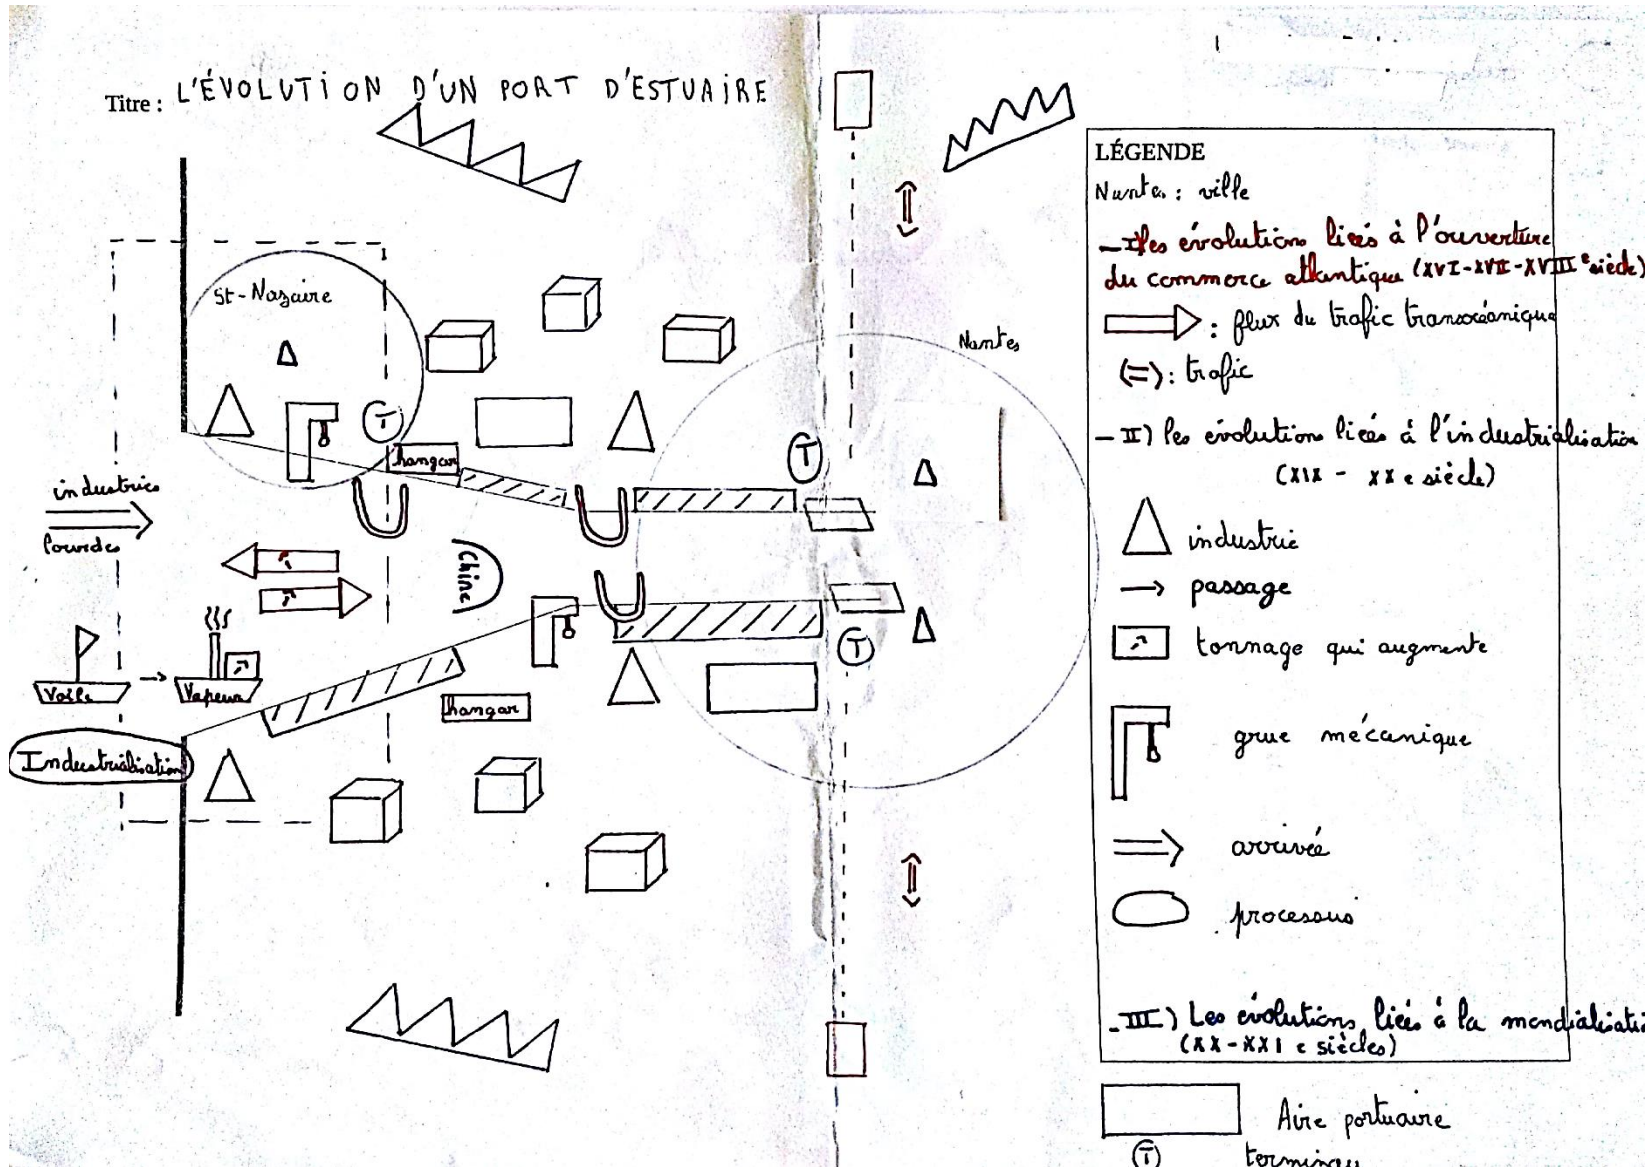 Titre : L'ÉVOLUTION D'UN PORT D'ESTUAIRE
St-Nazaire
Nantes
T
T
hangar
industries
lourdes
Chine
T
Voile
Vapeur
hangar
Industrialisation
LÉGENDE
Nantes : ville
- I) les évolutions liées à l'ouverture
du commerce atlantique (XVI-XVII-XVIIIe siècle)
: flux du trafic transocéanique
(=) : trafic
- II) les évolutions liées à l'industrialisation
(XIX - XXe siècle)
industrie
passage
tonnage qui augmente
grue mécanique
arrivée
processus
- III) Les évolutions liées à la mondialisati
(XX-XXI e siècles)
Aire portuaire
T terminau